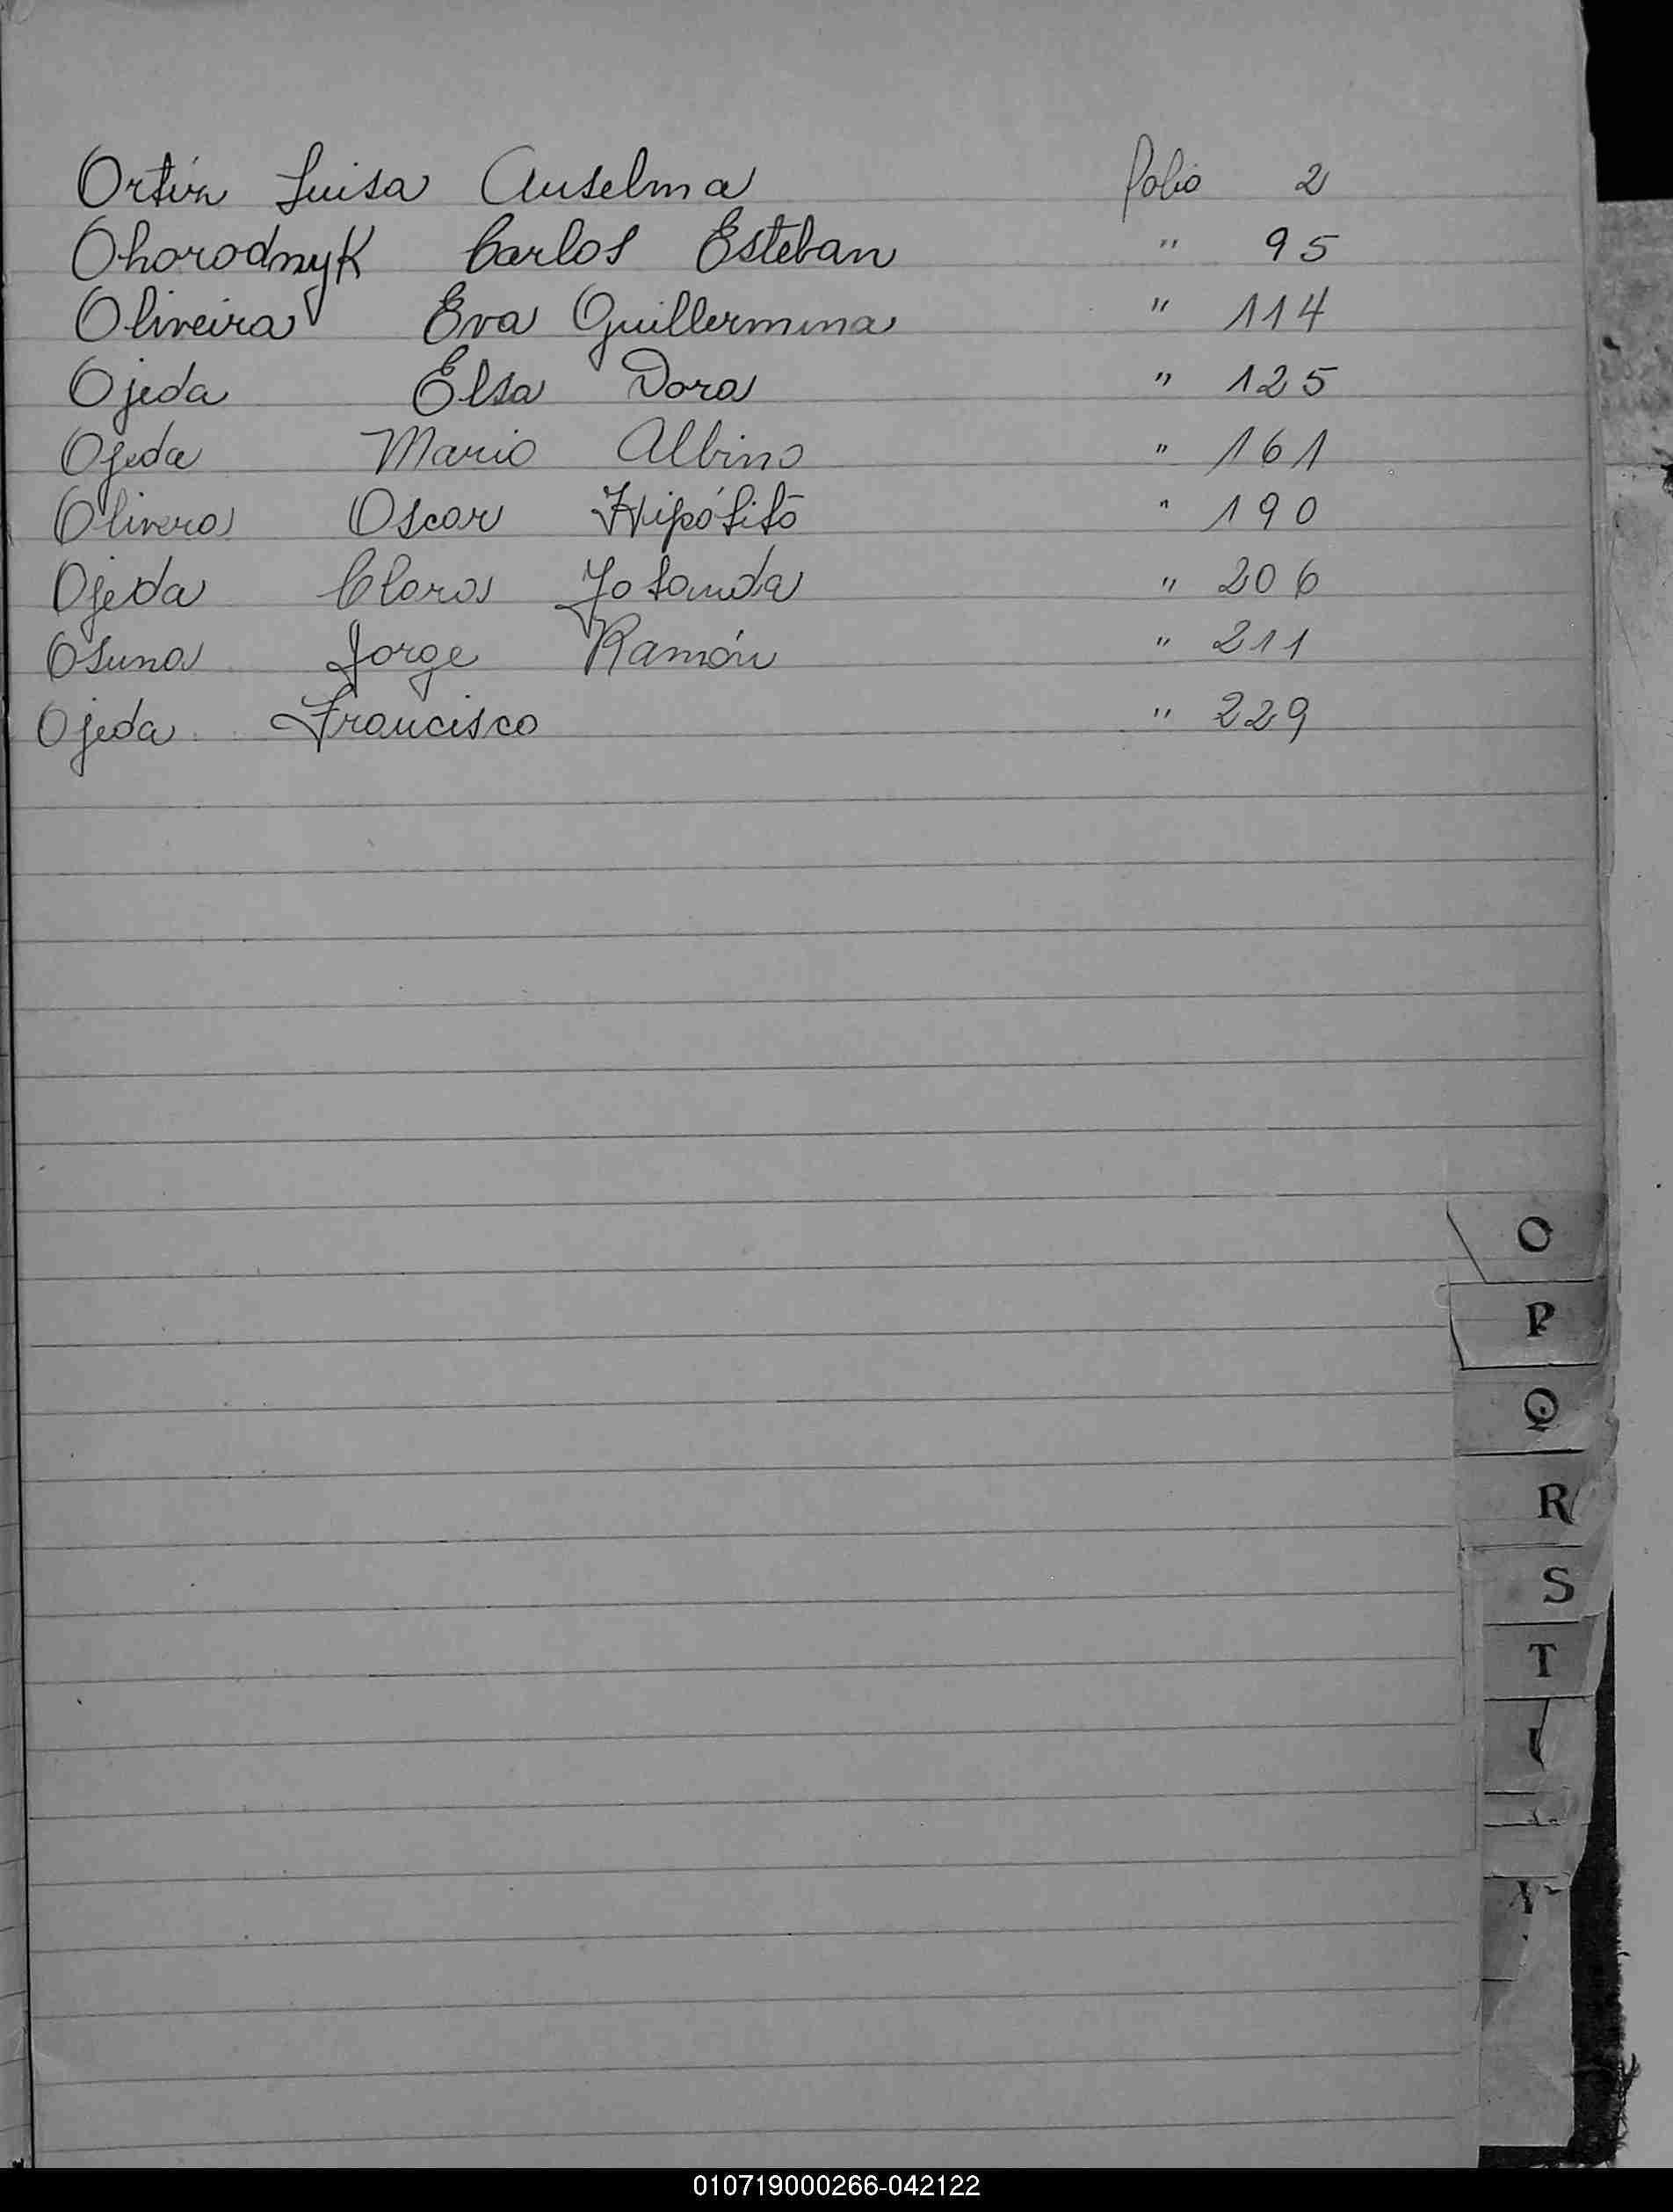 Ortín Luisa Anselma folio 2
Ohorodnyk Carlos Esteban " 95
Oliveira Eva Guillermina " 114
Ojeda Elsa Dora " 125
Ojeda Mario Albino " 161
Olivera Oscar Hipólito " 190
Ojeda Clara Yolanda " 206
Osuna Jorge Ramón " 211
Ojeda Francisco " 229
O
P
Q
R
S
T
010719000266-042122